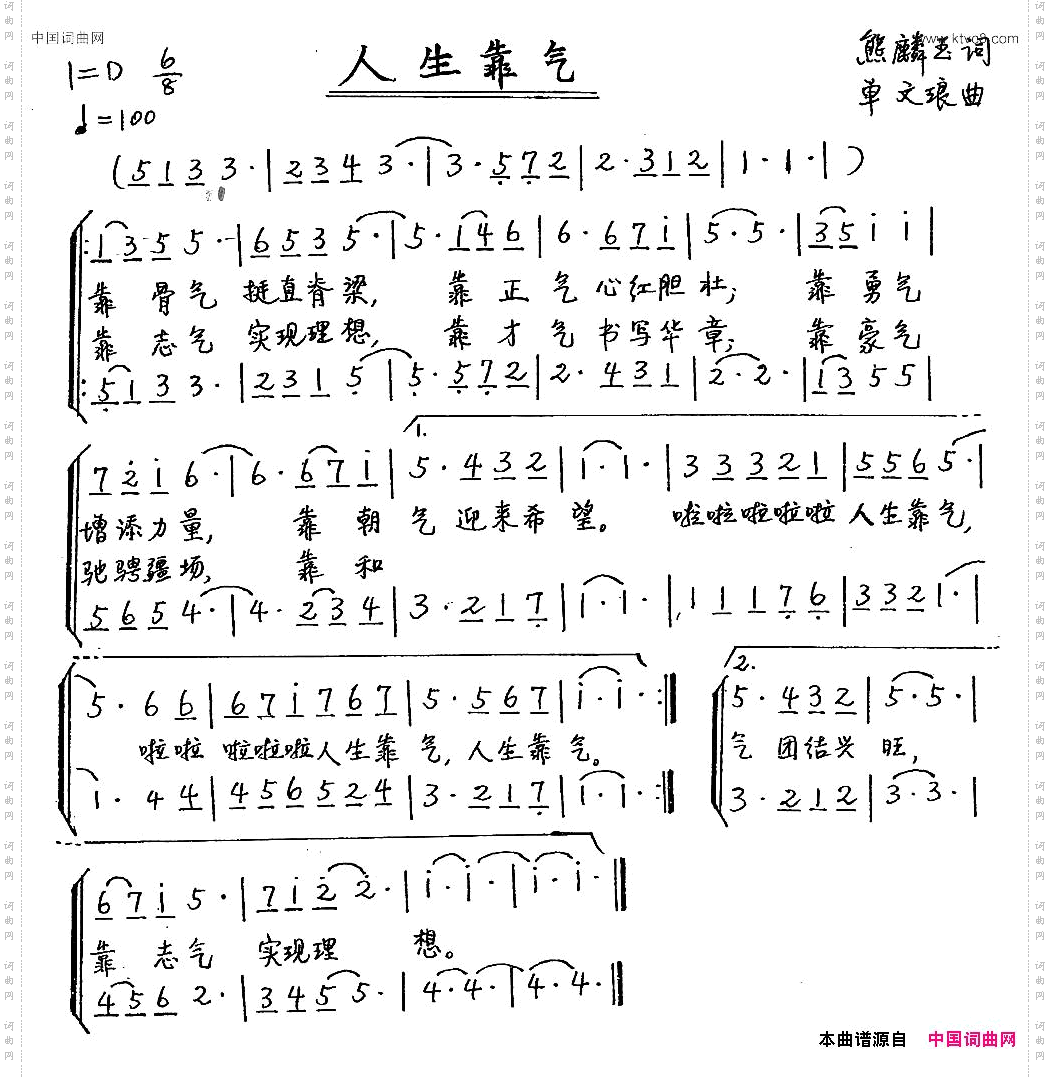 中国词曲网
www.ktvc8.com
1=D 6/8
人生靠气
熊麟玉词
♩=100
单文琅曲
(5 1 3 3·|2 3 4 3·|3· 5 7 2|2· 3 1 2|1· 1·|)
:1 3 5 5·|6 5 3 5·|5· 1 4 6|6· 6 7 i|5· 5·|3 5 i i|
靠骨气 挺直脊梁, 靠正气心红胆壮; 靠勇气
靠志气 实现理想, 靠才气书写华章; 靠豪气
:5 1 3 3·|2 3 1 5|5· 5 7 2|2· 4 3 1|2· 2·|1 3 5 5|
1.
7 2 i 6·|6· 6 7 i|5· 4 3 2|i· i·|3 3 3 2 1|5 5 6 5·|
增添力量, 靠朝气迎来希望。 啦啦啦啦啦人生靠气,
驰骋疆场, 靠和
5 6 5 4·|4· 2 3 4|3· 2 1 7|i· i·|1 1 1 7 6|3 3 2 1·|
2.
5· 6 6|6 7 i 7 6 7|5· 5 6 7|i· i·:‖ 5· 4 3 2|5· 5·|
啦啦 啦啦啦人生靠气,人生靠气。 气团结兴旺,
1· 4 4|4 5 6 5 2 4|3· 2 1 7|i· i·:‖ 3· 2 1 2|3· 3·|
6 7 i 5·|7 i 2 2·|i· i·|i· i·‖
靠志气 实现理 想。
4 5 6 2·|3 4 5 5·|4· 4·|4· 4·‖
本曲谱源自 中国词曲网